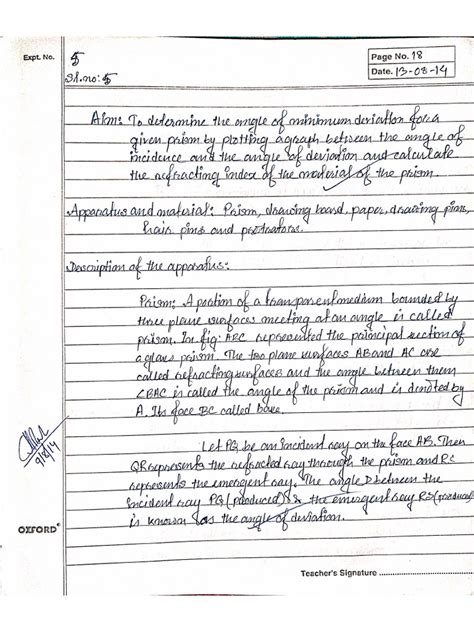 Expt. No. 5
Page No. 18
Sl.no: 5
Date. 13-08-14
Aim: To determine the angle of minimum deviation for a
given prism by plotting a graph between the angle of
incidence and the angle of deviation and calculate
the refracting index of the material of the prism.
Apparatus and material: Prism, drawing board, paper, drawing pins,
hair pins and protractors.
Description of the apparatus:
Prism: A portion of a transparent medium bounded by
three plane surfaces meeting at an angle is called
prism. In fig: ABC represented the principal section of
a glass prism. The two plane surfaces AB and AC are
called refracting surfaces and the angle between them
∠BAC is called the angle of the prism and is denoted by
A. Its face BC called base.
9/8/14
Let PQ be an incident ray on the face AB. Then
QR represents the refracted ray through the prism and RS
represents the emergent ray. The angle D between the
incident ray PQ (produced) & the emergent ray RS (produced)
is known as the angle of deviation.
OXFORD
Teacher's Signature